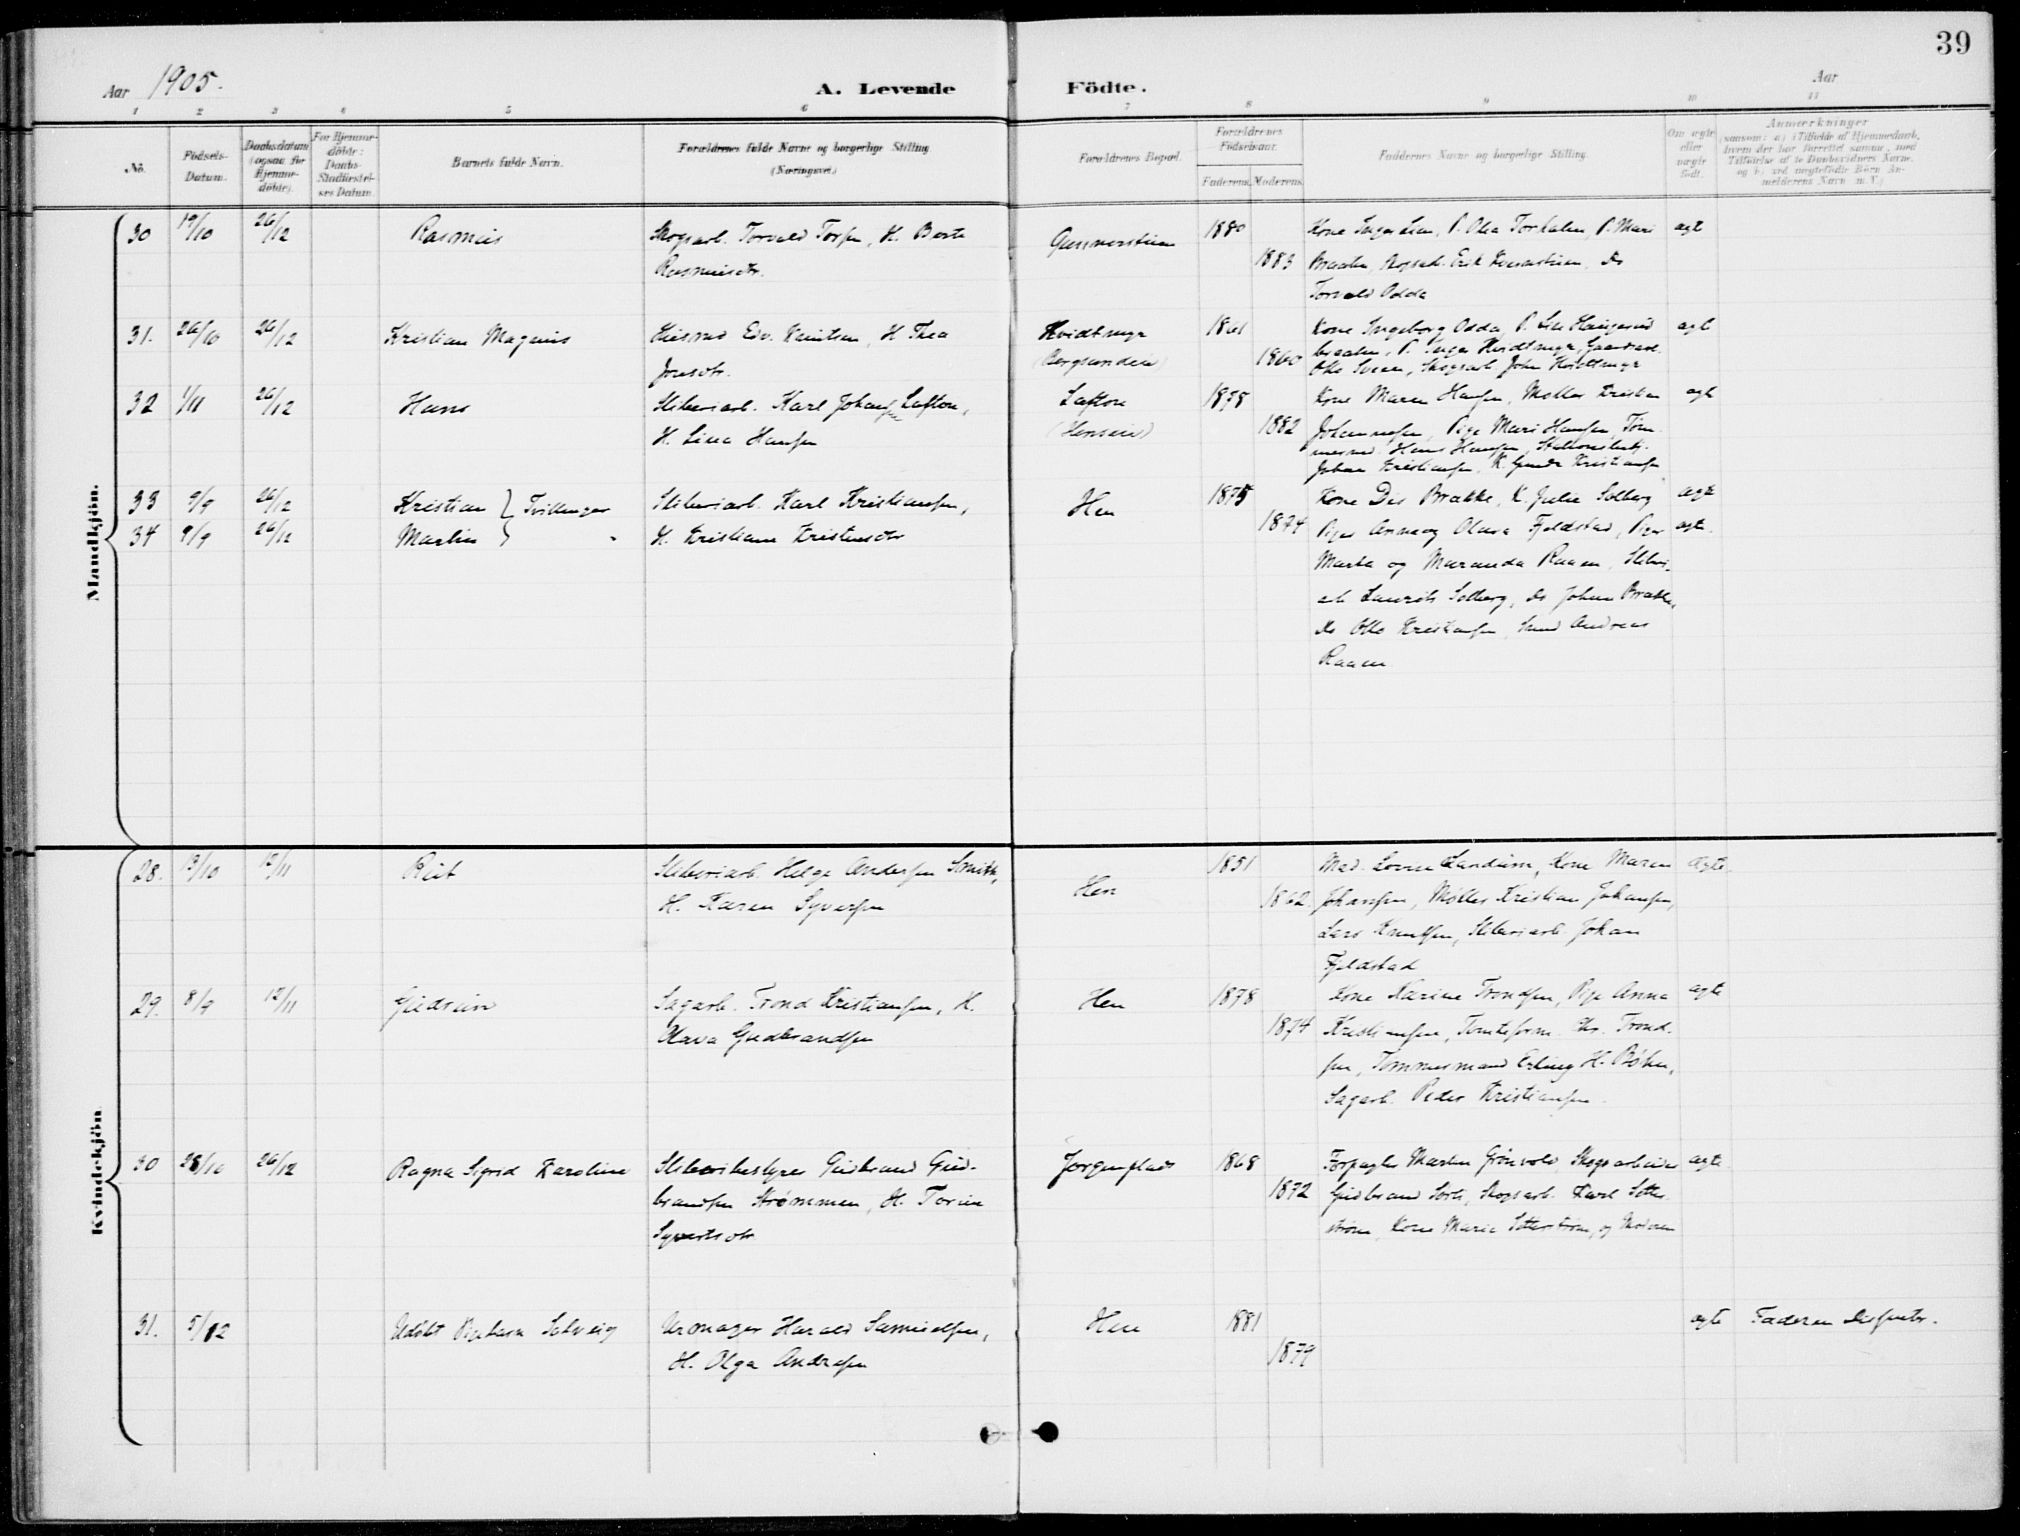 39
Aar 1905.
A. Levende Födte.
Aar
1 2 3 4 5 6 7 8 9 10 11
No.
Födsels-Datum.
Daabsdatum (ogsaa for Hjemme-döbte).
For Hjemme-döbte: Daabs-Stadfæstel-ses Datum.
Barnets fulde Navn.
Forældrenes fulde Navne og borgerlige Stilling (Næringsvei.)
Forældrenes Bopæl.
Forældrenes Födselsaar.
Faderens. Moderens.
Faddernes Navne og borgerlige Stilling.
Om ægte eller uægte födt.
Anmærkninger
Mandkjön.
30 19/10 26/12 Rasmus Skogsarb. Torvald Torsen, H. Berte
Rasmusdtr.
1880 1883
Kone Inger Lien, P. Olea Torhalen, P. Mari
Braaten, Skogsarb. Erik, do
Torvald Odda
ægt
31. 26/10 26/12 Kristian Magnus Husmd Edv. Knutsen, H. Thea
Jonsdtr.
Kvidtmyr
1861 1860
Kone Ingeborg Odda, P.
braaten, P. Inger Hvidtmyr, Gaardarb.
Otto Sveen, Skogsarb. John Hvidtmyr
ægt
32 1/11 26/12 Hans Sliberiarb. Karl Johansen Laften,
H. Lina Hansen
Laften
(Henseie)
1878 1882
Kone Maren Hansen, Møller Kristian
Johannesen, Pige Mari Hansen, Tøm
mermd. Hans Hansen,
Johan Kristiansen, K. Kristiansen
ægt
33 9/9 26/12 Kristian } Tvillinger Sliberiarb. Karl Kristiansen,
34 9/9 26/12 Martin } H. Kristiane Kristensdtr
Hen
1875 1874
Kone Dis Brække, K. Julie Solberg
Piger Anne og Olava Fjeldstad, Piger
Marta og Maranda Raaen, Sliberi-
arb Laurits Solberg, do Johan Brække,
do Otto Kristiansen, Smed Andreas
Raaen
ægte
ægte.
Kvindekjön.
28. 13/10 12/11 Rut Sliberiarb. Helge Andersen Smith,
H. Karen Syversen
Hen
1851 1862.
Mad. Lovise Landum, Kone Maren
Johansen, Møller Kristian Johansen,
Lars Knutsen, Sliberiarb Johan
Fjeldstad
ægte.
29. 8/9 12/11 Gudrun Sagarb. Trond Kristiansen, H.
Olava Gudbrandsen
Hen
1878 1874
Kone Karine Trondsen, Pige Anna
Kristiansen, Tomteform. Chr. Trond-
sen, Tømmermand Erling H. Bøhn,
Sagarb. Peder Kristiansen.
ægte
30 28/10 26/12 Ragna Sigrid Karoline Sliberibestyrer Gudbrand Gud-
brandsen Strømmen, H. Torine
Syvertsdtr
Jørgenplads
1868 1872
Forpagter Martin Grønvold, Skogsarbeider
Gudbrand Sorte, Skogsarb. Karl Setter
strøm, Kone Marie Setterstrøm, og Moderen
ægte
31. 5/12 Udøbt Pigebarn Solveig Urmager Harald Samuelsen,
H. Olga Andresen
Hen
1881 1879
ægte Faderen dissenter.